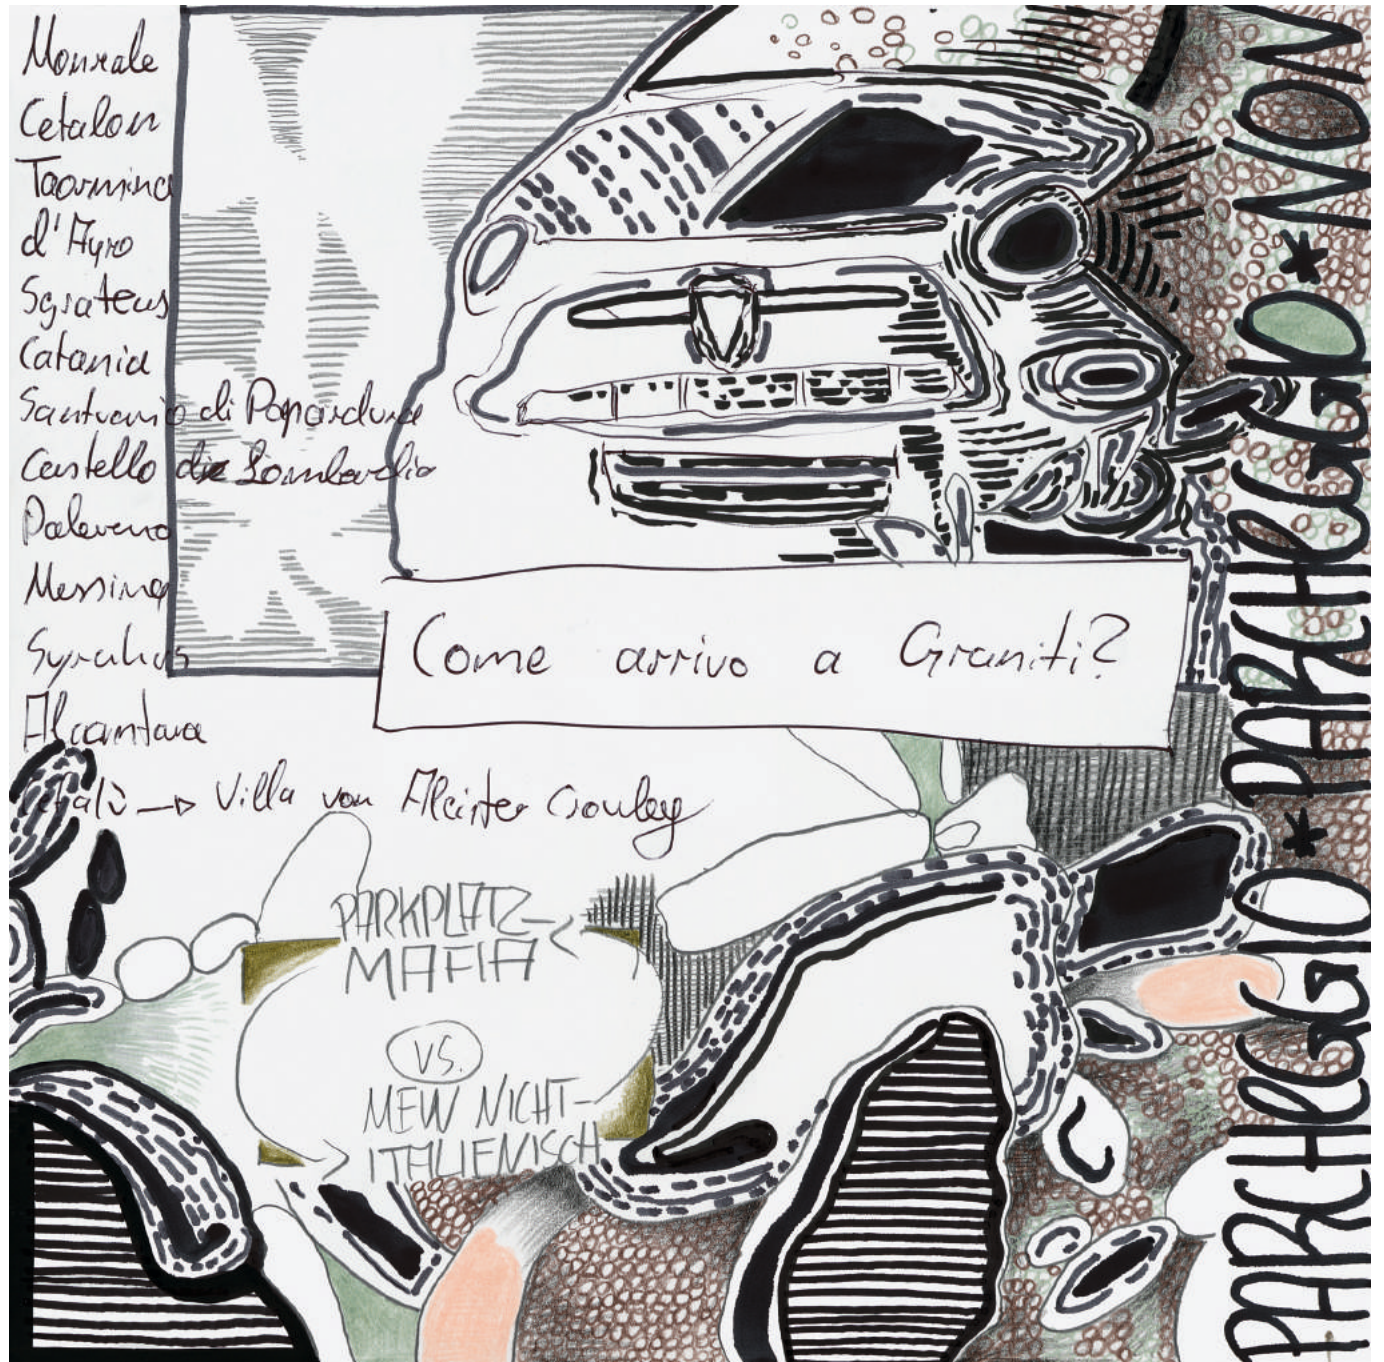 Monreale
Cefalon
Taormina
d'Agro
Sgrateus
Catania
Santuario di Papardura
Castello die Lombardia
Palermo
Messina
Syrakus
Alcantara
alù → Villa von Aleister Crouley
Come arrivo a Graniti?
PARKPLATZ-
MAFIA
VS.
MEW NICHT-
ITALIENISCH
PARCHEGGIO * PARCHEGGIO * NON